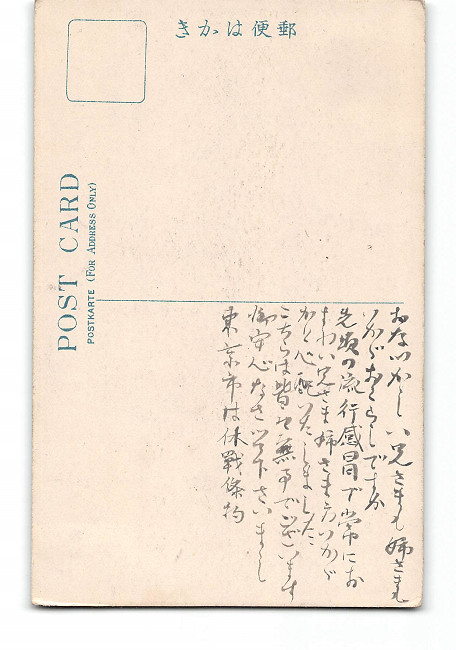 郵便はかき
POST CARD
POSTKARTE (FOR ADDRESS ONLY)
おなつかしい兄さまも姉さまも
いかがおくらしですか
先頃の流行感冒で常にお
よわい兄さま姉さま方いかが
かと心配いたしました
こちらは皆々無事でございます
御安心なさって下さいまし
東京市は休戰條約